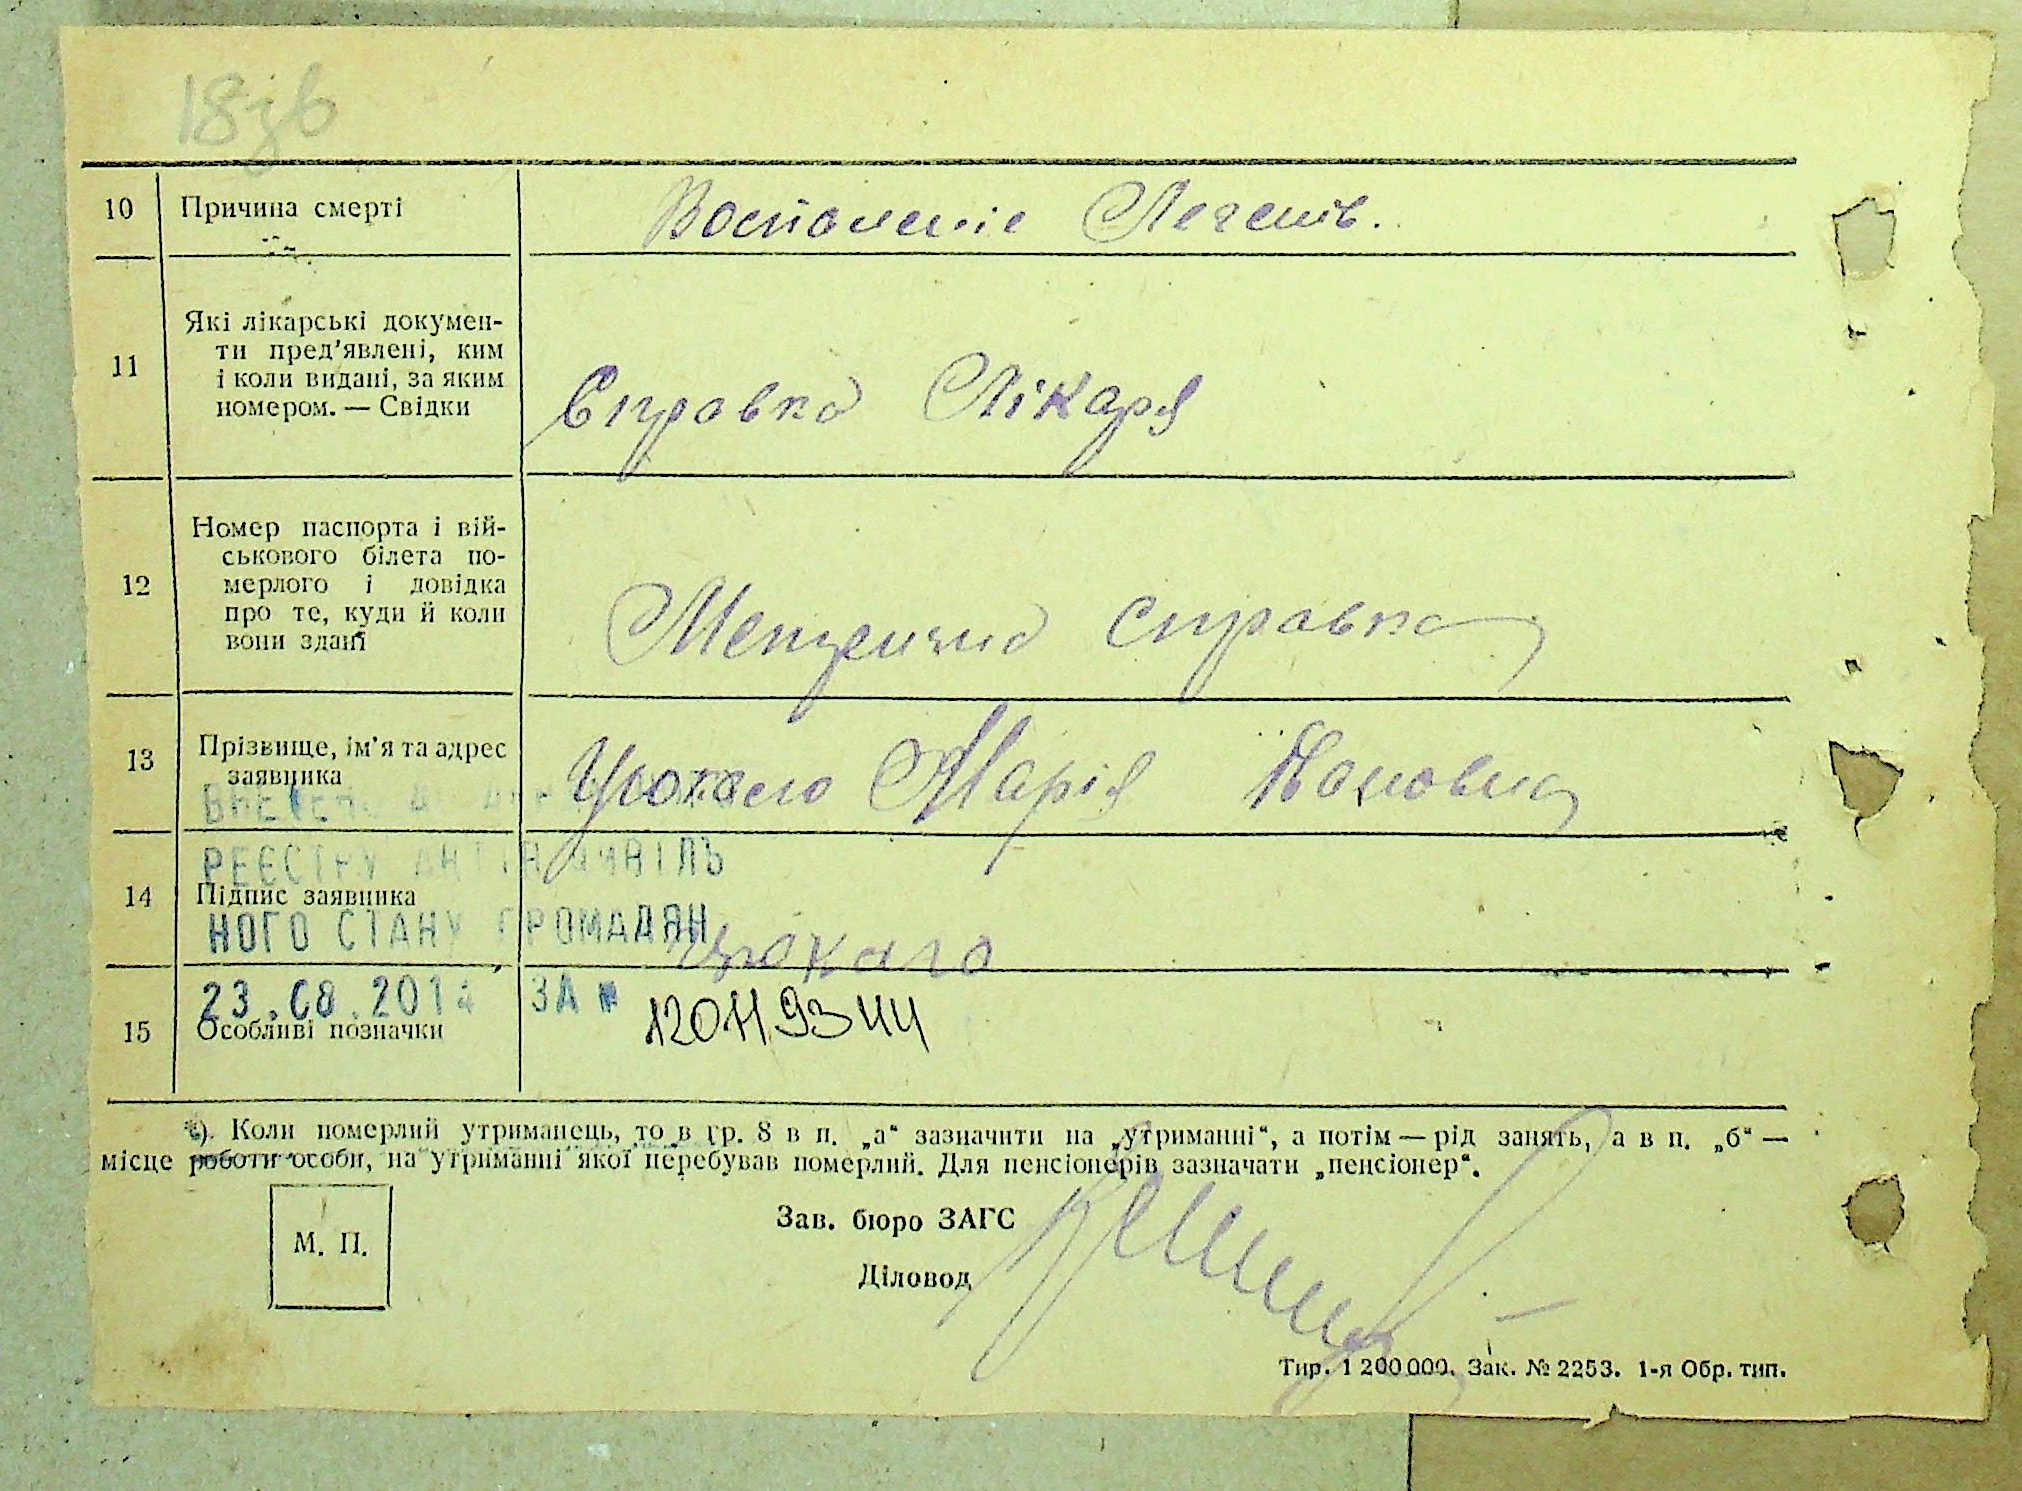 18зв
10 Причина смерті Воспаление Легенів.
Які лікарські докумен-
ти пред'явлені, ким
11
і коли видані, за яким
номером. — Свідки
Справка Лікаря
Номер паспорта і вій-
ськового білета по-
12 мерлого і довідка
про те, куди й коли
вони здані
Метрична справка
13 Прізвище, ім'я та адрес
заявника
Марія
РЕЄСТРУ АКТІВ ЦИВІЛЬ
14 Підпис заявника
НОГО СТАНУ ГРОМАДЯН
23.08.201 ЗА №
15 Особливі позначки
*) Коли померлий утриманець, то в гр. 8 в п. „а“ зазначити на „утриманні“, а потім — рід занять, а в п. „б“ —
місце роботи особи, на утриманні якої перебував померлий. Для пенсіонерів зазначати „пенсіонер“.
М. П.
Зав. бюро ЗАГС
Діловод
Тир. 1 200 000. Зак. № 2253. 1-я Обр. тип.